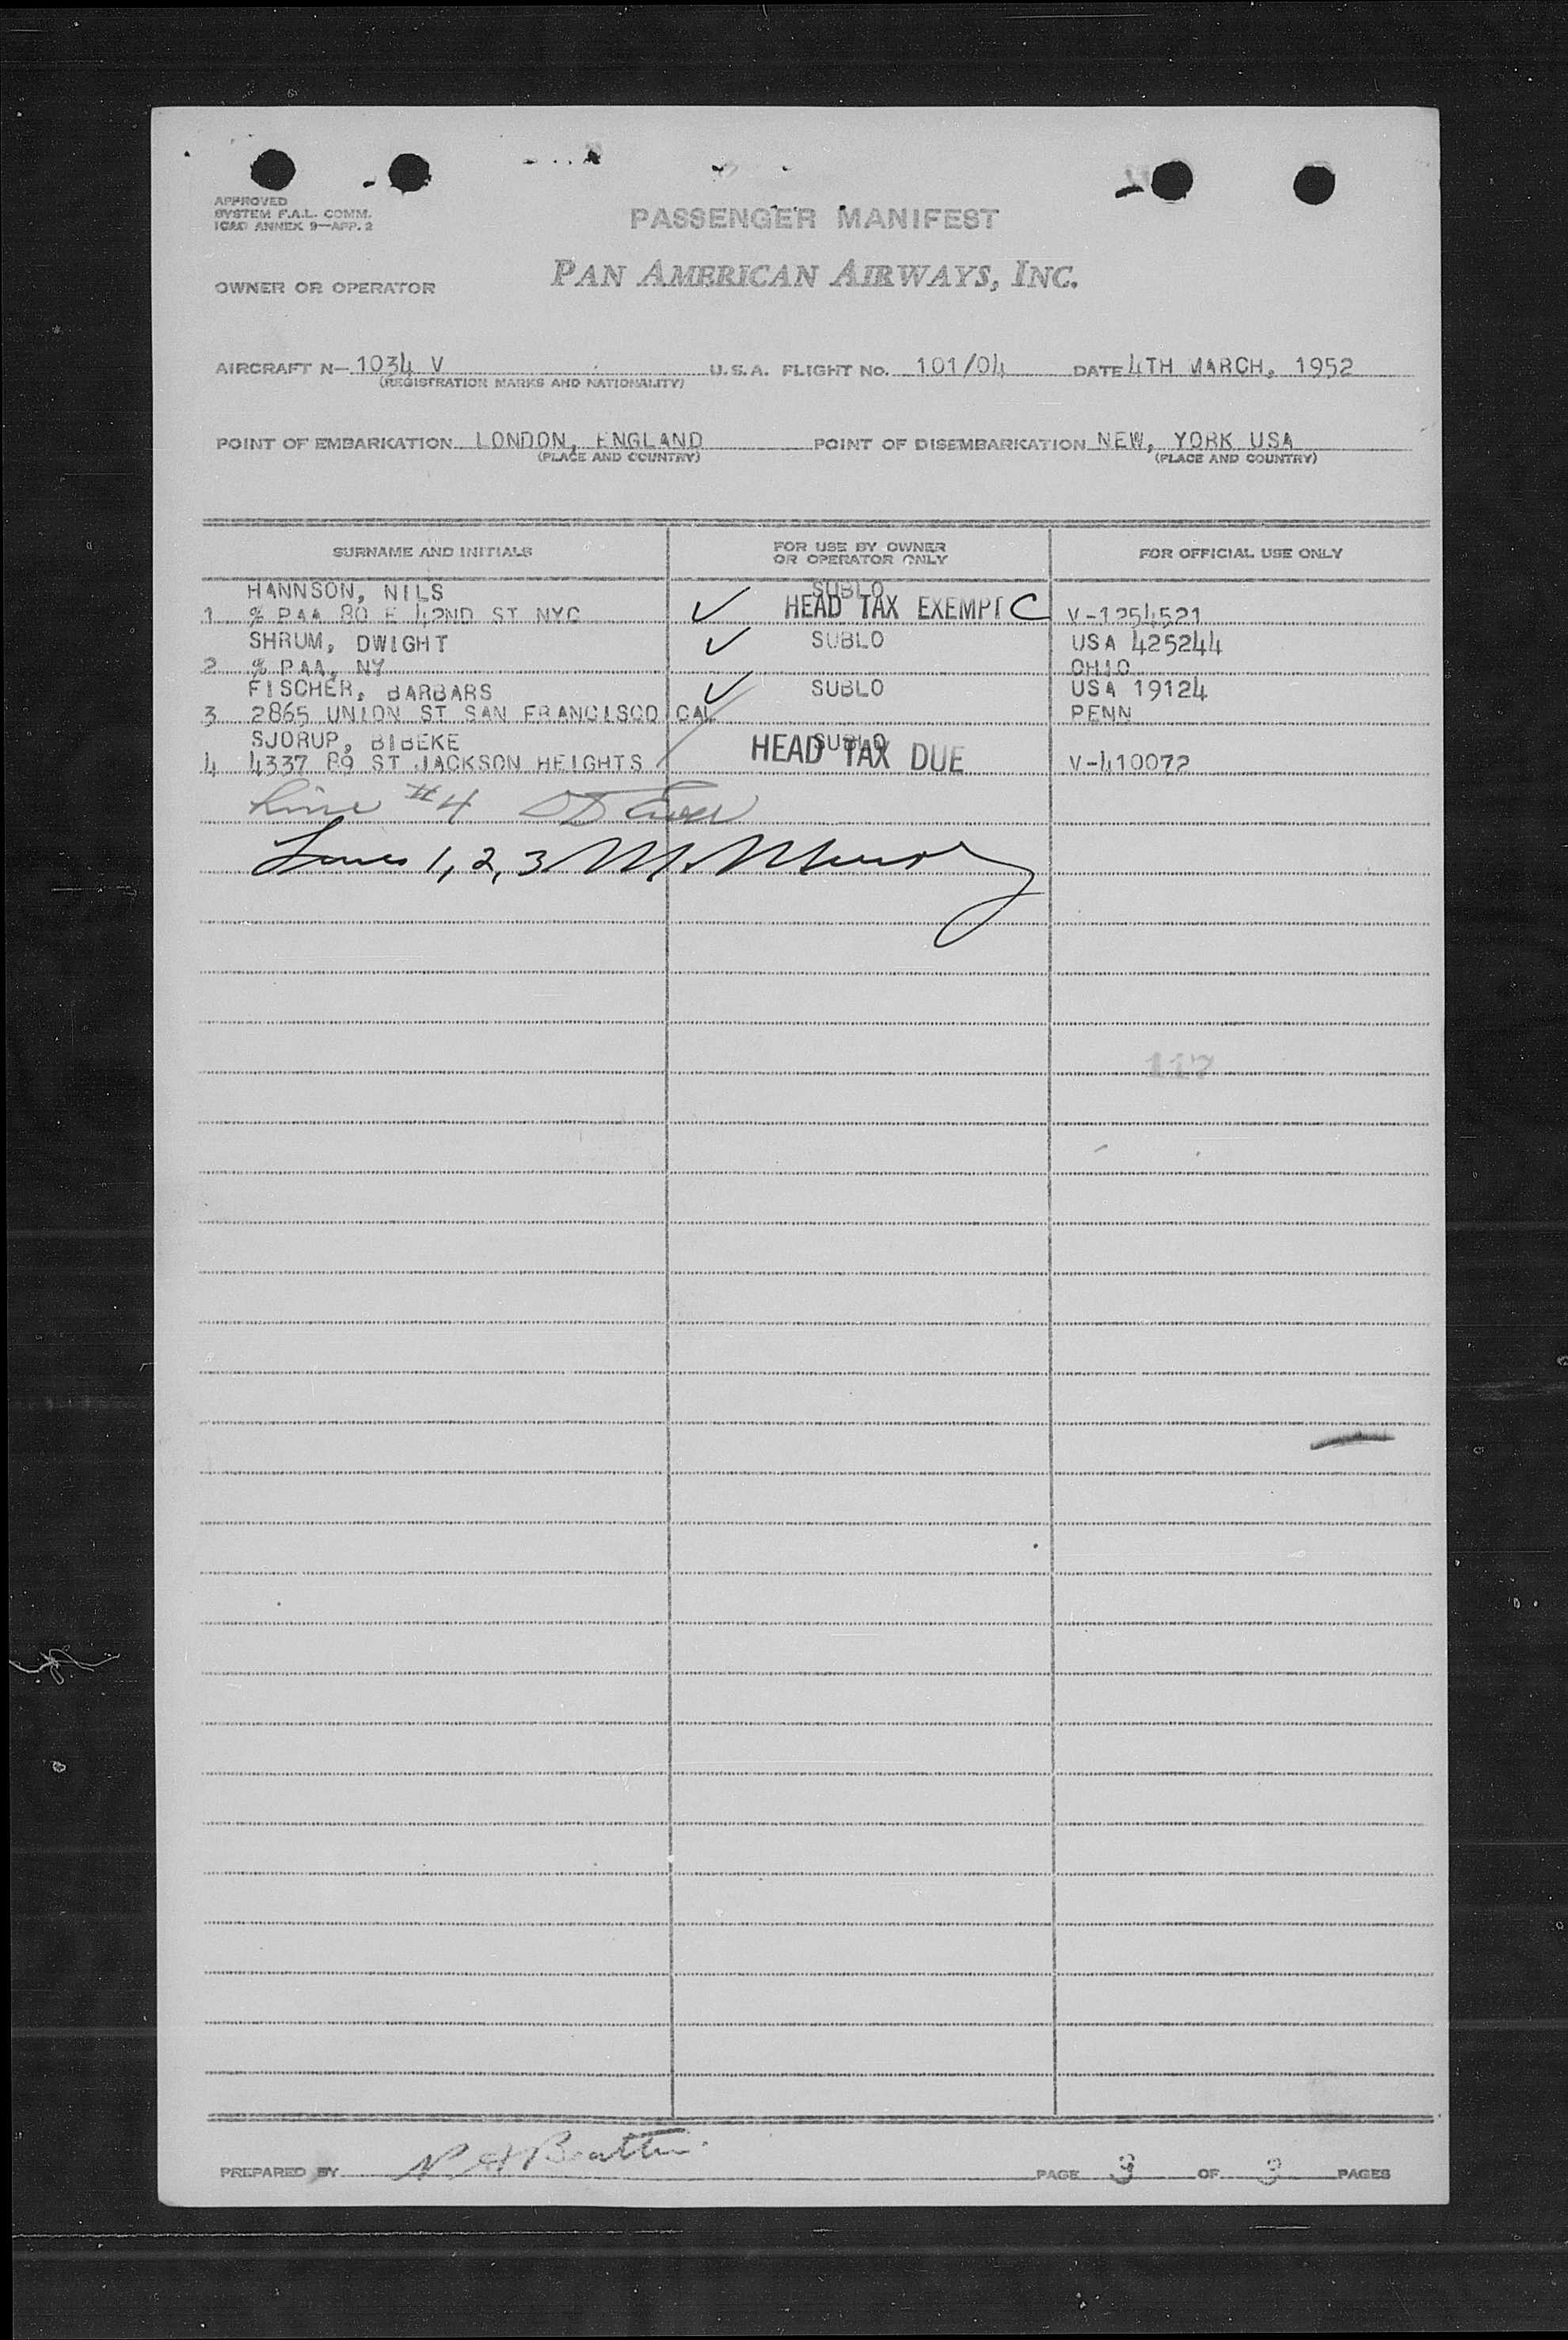 APPROVED
SYSTEM F.A.L. COMM.
ICAO ANNEX 9—APP. 2
PASSENGER MANIFEST
OWNER OR OPERATOR PAN AMERICAN AIRWAYS, INC.
AIRCRAFT N— 1034 V U.S.A. FLIGHT NO. 101/04 DATE 4TH MARCH, 1952
(REGISTRATION MARKS AND NATIONALITY)
POINT OF EMBARKATION LONDON, ENGLAND POINT OF DISEMBARKATION NEW, YORK USA
(PLACE AND COUNTRY) (PLACE AND COUNTRY)
SURNAME AND INITIALS FOR USE BY OWNER OR OPERATOR ONLY FOR OFFICIAL USE ONLY
HANNSON, NILS SUBLO
1 % PAA 80 E 42ND ST NYC ✓ HEAD TAX EXEMPT C V-1254521
SHRUM, DWIGHT ✓ SUBLO USA 425244
2 % PAA, NY OHIO
FISCHER, BARBARS ✓ SUBLO USA 19124
3 2865 UNION ST SAN FRANCISCO CAL PENN
SJORUP, BIBEKE SUBLO
4 4337 89 ST JACKSON HEIGHTS HEAD TAX DUE V-410072
Line #4
Lines 1, 2, 3 M.
117
PREPARED BY PAGE 3 OF 3 PAGES